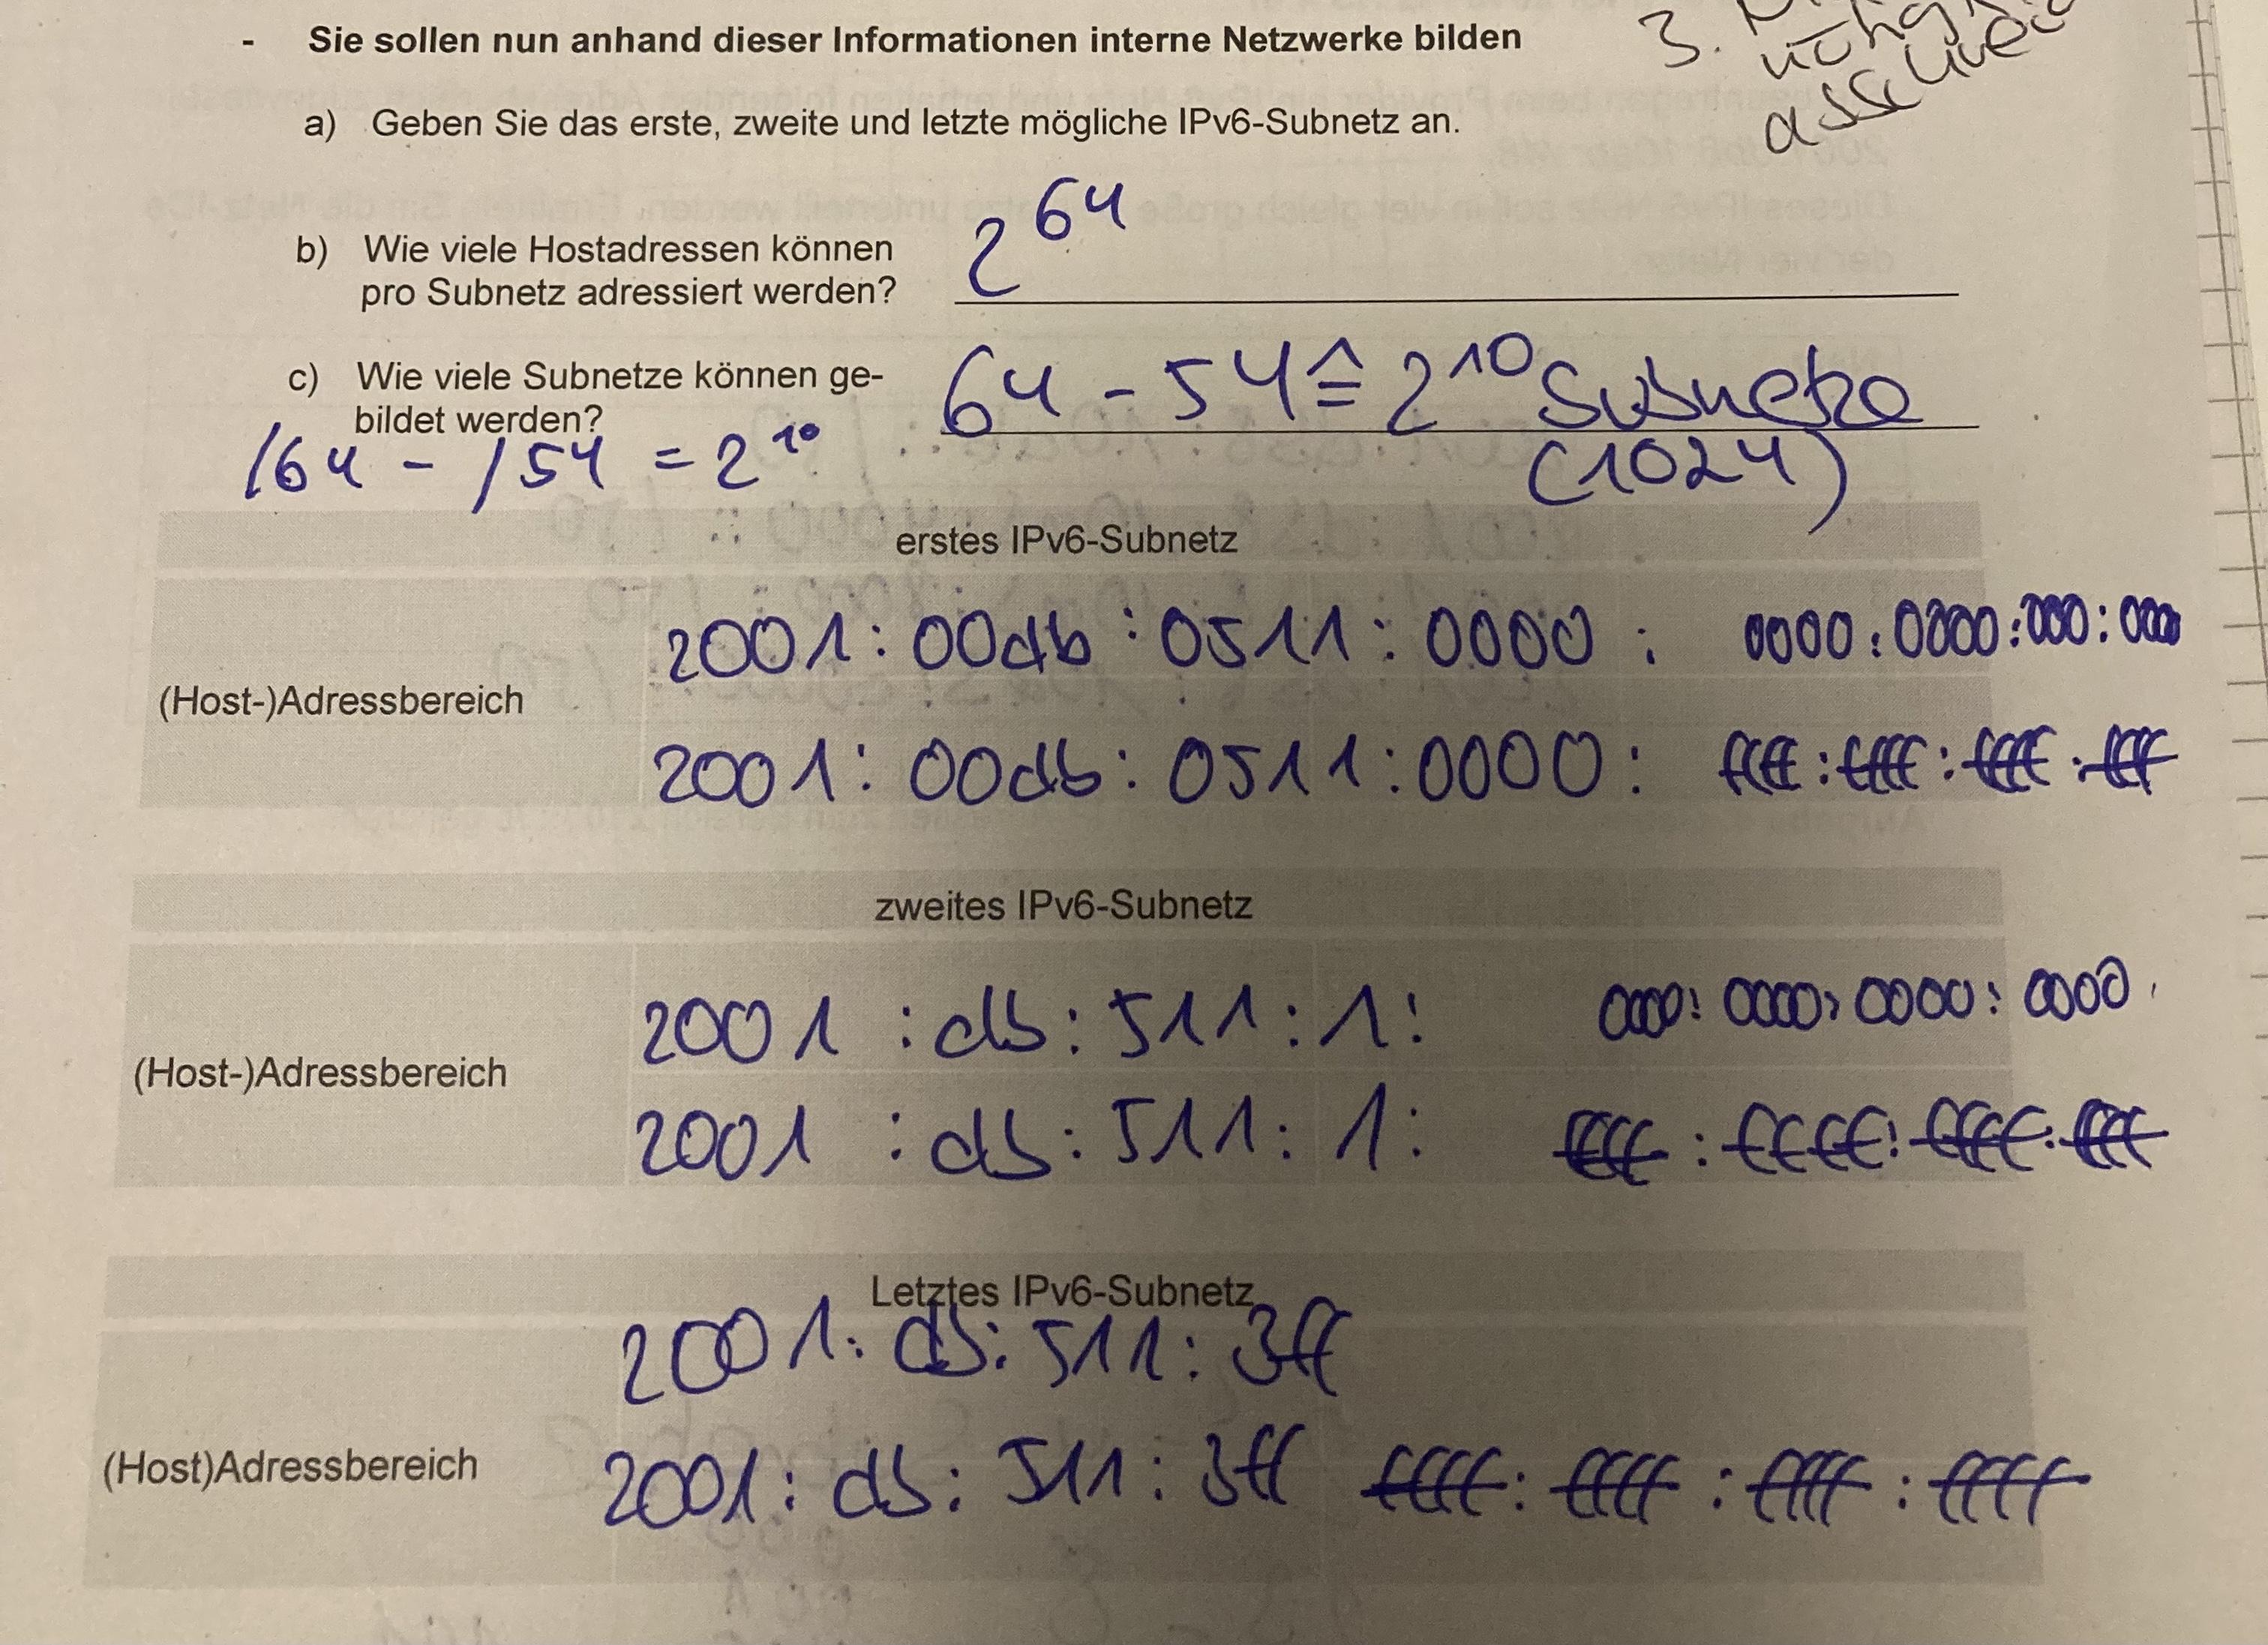 - Sie sollen nun anhand dieser Informationen interne Netzwerke bilden
3.
a) Geben Sie das erste, zweite und letzte mögliche IPv6-Subnetz an.
b) Wie viele Hostadressen können
pro Subnetz adressiert werden?
2^64
c) Wie viele Subnetze können ge-
bildet werden?
64 - 54 ≙ 2^10 Subnetze
(1024)
/64 - /54 = 2^10
erstes IPv6-Subnetz
(Host-)Adressbereich
2001:00db:0511:0000: 0000:0000:000:0000
2001:00db:0511:0000: ffff:ffff:ffff:ffff
zweites IPv6-Subnetz
(Host-)Adressbereich
2001:db:511:1: 0000:0000:0000:0000
2001:db:511:1: ffff:ffff:ffff:ffff
Letztes IPv6-Subnetz
(Host)Adressbereich
2001:db:511:3ff
2001:db:511:3ff ffff:ffff:ffff:ffff